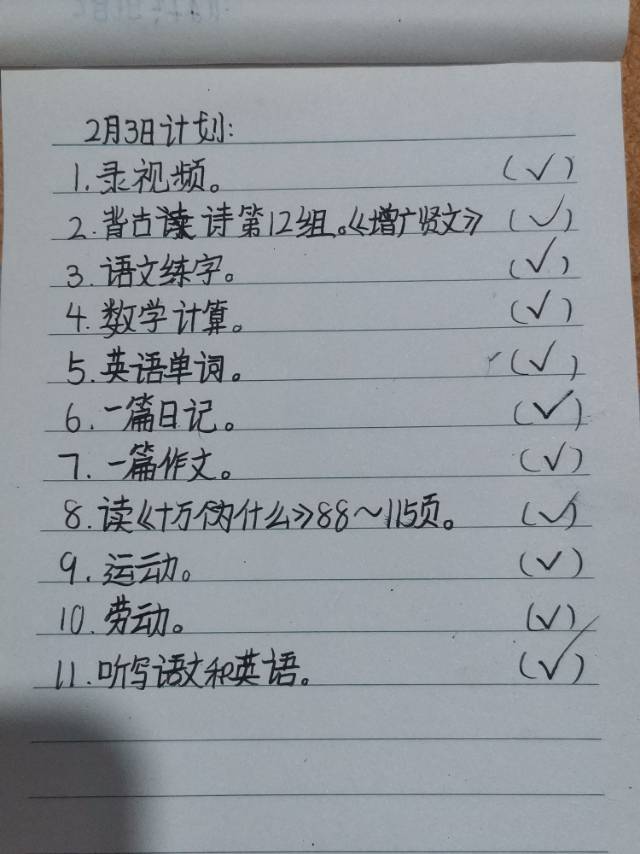 2月3日计划:
1.录视频。 (√)
2.背古诗第12组。《增广贤文》 (√)
3.语文练字。 (√)
4.数学计算。 (√)
5.英语单词。 (√)
6.一篇日记。 (√)
7.一篇作文。 (√)
8.读《十万个为什么》88~115页。 (√)
9.运动。 (√)
10.劳动。 (√)
11.听写语文和英语。 (√)